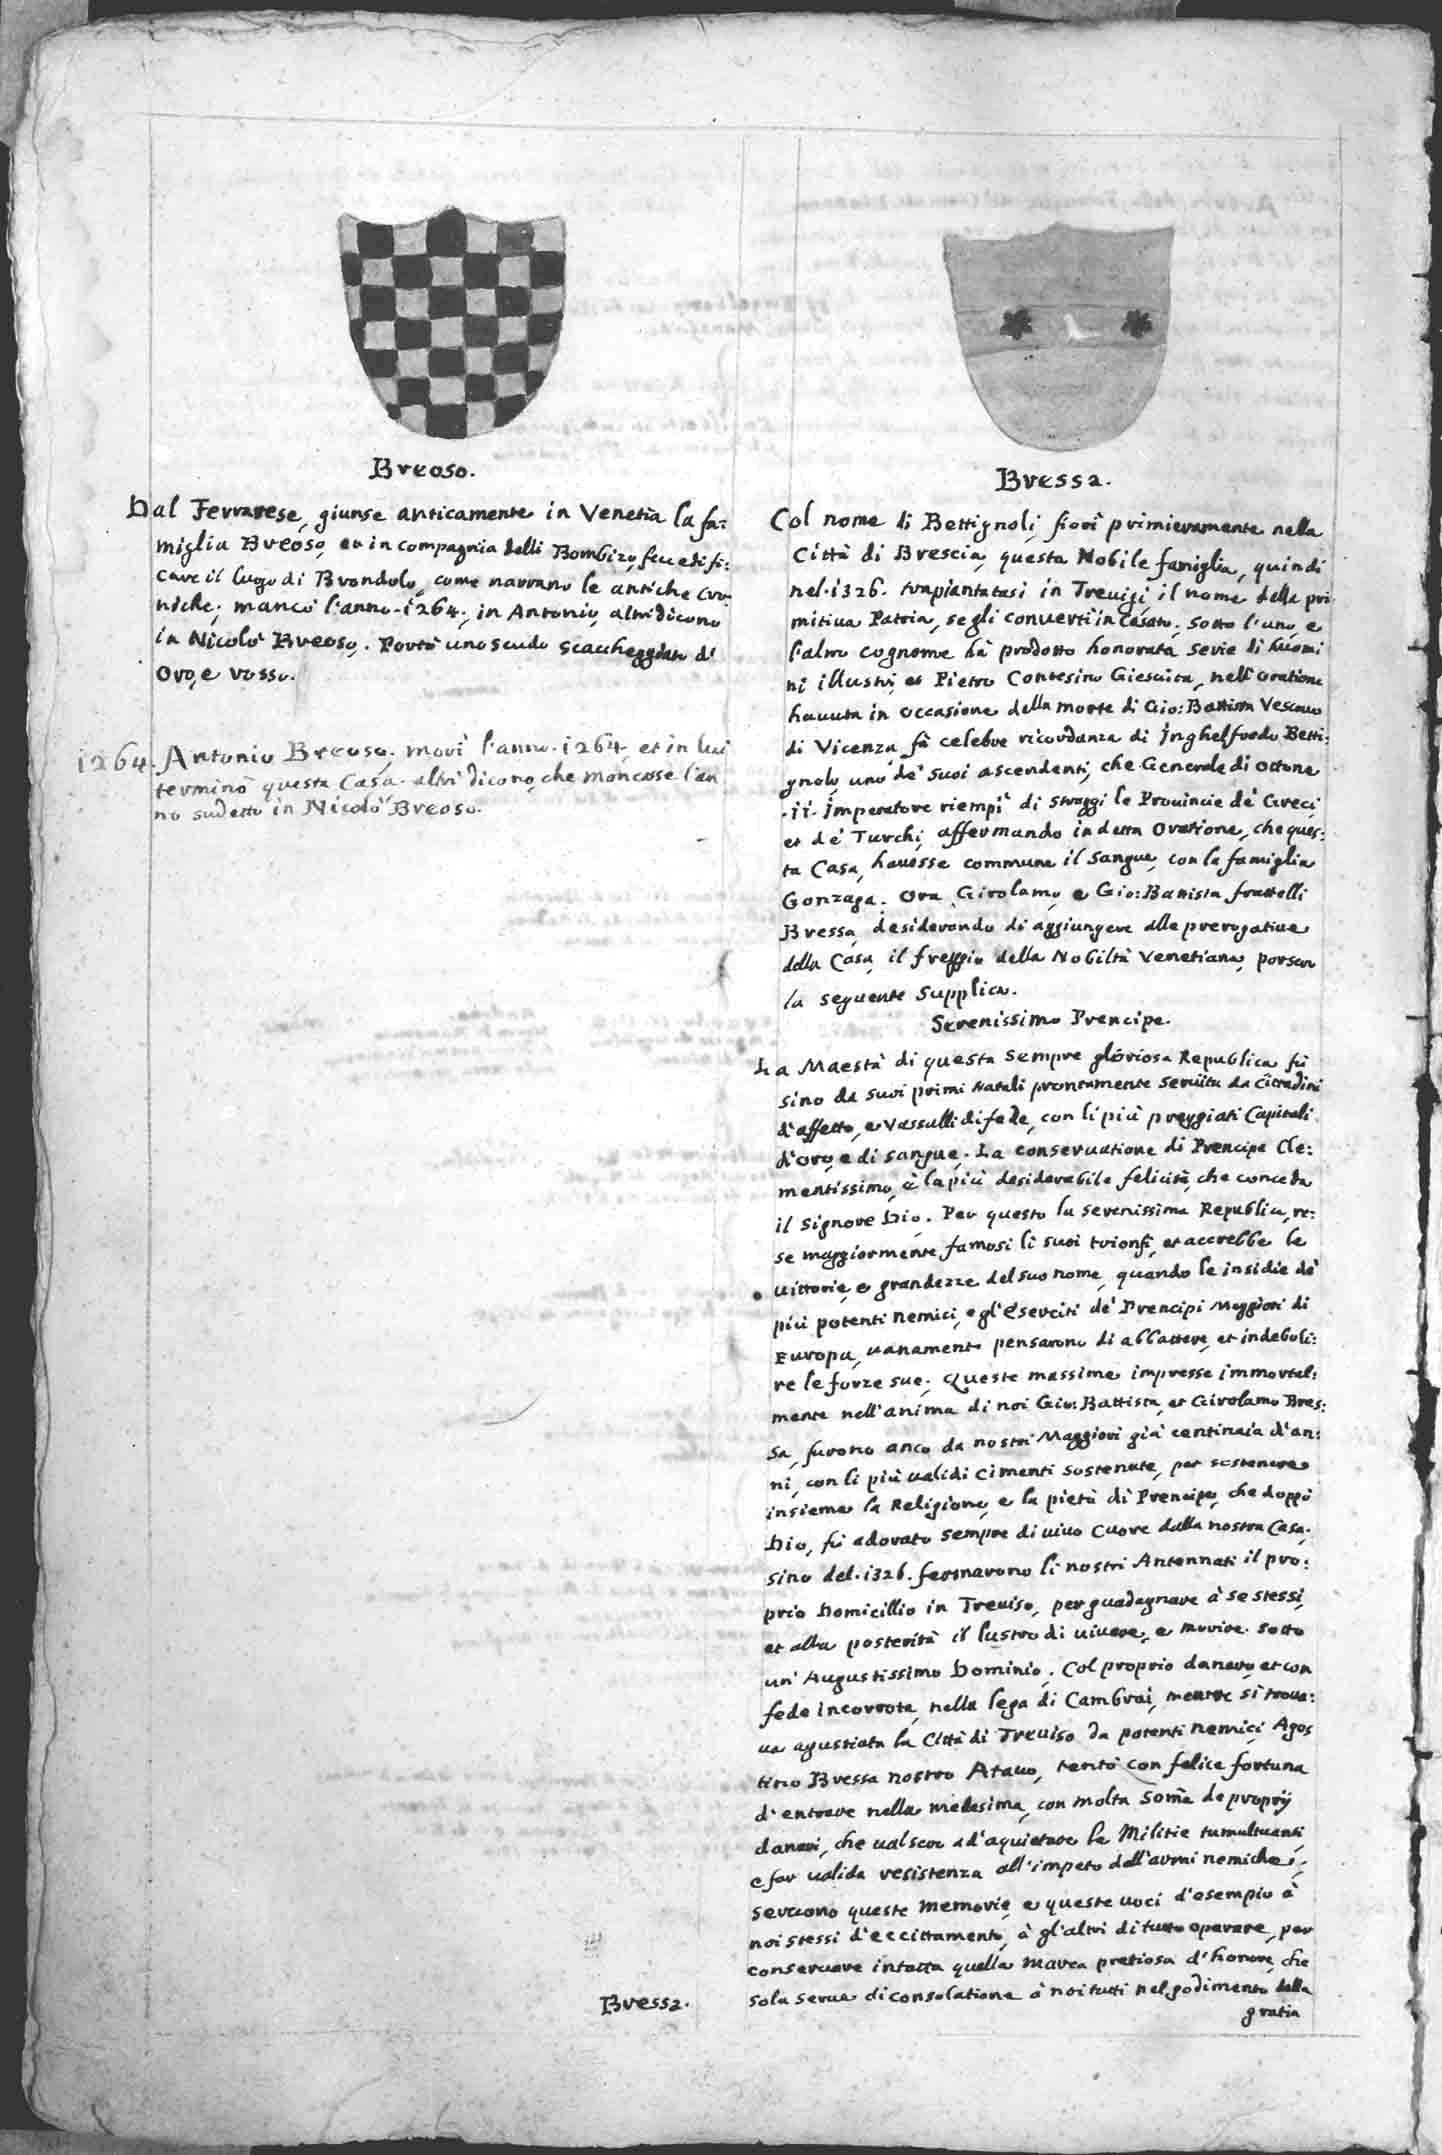 Breoso.
Dal Ferrarese, giunse anticamente in Venetia la fa:
miglia Breoso, et in compagnia delli Bombizo, fece edifi:
care il luogo di Brondolo, come narrano le antiche Cro
niche; mancò l'anno .1264., in Antonio, altri dicono
in Nicolò Breoso. Portò uno scudo scaccheggiato d'
Oro, e rosso.
1264. Antonio Breoso, morì l'anno .1264, et in lui
terminò questa Casa. altri dicono, che mancasse l'an
no sudetto in Nicolò Breoso.
Bressa.
Bressa.
Col nome di Bettignoli, fiorì primieramente nella
Città di Brescia, questa Nobile famiglia, quindi
nel .1326. trapiantatasi in Trevigi, il nome della pri
mitiua Patria, se gli conuertì in Casato, sotto l'uno, e
l'altro cognome hà prodotto honorata serie di huomi
ni illustri, et Pietro Contesino Giesuita, nell'oratione
hauuta in occasione della morte di Gio: Battista Vescouo
di Vicenza, fà celebre ricordanza di Inghelfredo Betti:
gnolo, uno de' suoi ascendenti, che Generale di Ottone
.II. Imperatore riempì di straggi le Prouincie de' Greci,
et de' Turchi, affermando in detta Oratione, che ques:
ta Casa, hauesse commune il sangue, con la famiglia
Gonzaga. Ora Girolamo, e Gio: Battista fratelli
Bressa, desiderando di aggiungere alle prerogatiue
della Casa, il freggio della Nobiltà Venetiana, porsero
la seguente Supplica.
Serenissimo Prencipe.
La Maestà di questa sempre gloriosa Republica fù
sino da suoi primi Natali prontamente seruita da Cittadini
d'affetto, e Vassalli di fede, con li più preggiati Capitali
d'oro, e di sangue. La conseruatione di Prencipe Cle:
mentissimo, è la più desiderabile felicità, che conceda
il Signore Dio. Per questo la serenissima Republica, re:
se maggiormente famosi li suoi trionfi, et accrebbe le
uittorie, e grandezze del suo nome, quando le insidie de'
più potenti nemici, e gl'Eserciti de' Prencipi Maggiori di
Europa, uanamente pensarono di abbattere, et indeboli:
re le forze sue. Queste massime impresse immortal:
mente nell'anima di noi Gio: Battista, et Girolamo Bres:
sa, furono anco da nostri Maggiori già centinaia d'an:
ni, con li più ualidi Cimenti sostenute, per sostenere
insieme la Religione, e la pietà di Prencipe, che doppò
Dio, fù adorato sempre di uiuo Cuore dalla nostra Casa.
sino del .1326. fermarono li nostri Antennati il pro:
prio Domicillio in Treuiso, per guadagnare à se stessi,
et alla posterità il lustro di uiuere, e morire sotto
un' Augustissimo Dominio. Col proprio danaro, et con
fede incorrota, nella lega di Cambrai, mentre si troua:
ua agustiata la Città di Treuiso da potenti nemici, Agos
tino Bressa nostro Atauo, tentò con felice fortuna
d'entrare nella medesima, con molta Somã de proprij
danari, che ualsero ad'aquietare le Militie tumultuanti,
e far ualida resistenza all'impeto dell'armi nemiche;
seruono queste memorie, e queste uoci d'esempio à
noi stessi d'eccittamento, à gl'altri di tutto operare, per
conseruare intatta quella marca pretiosa d'honore, che
sola serue di consolatione à noi tutti nel godimento della
gratia